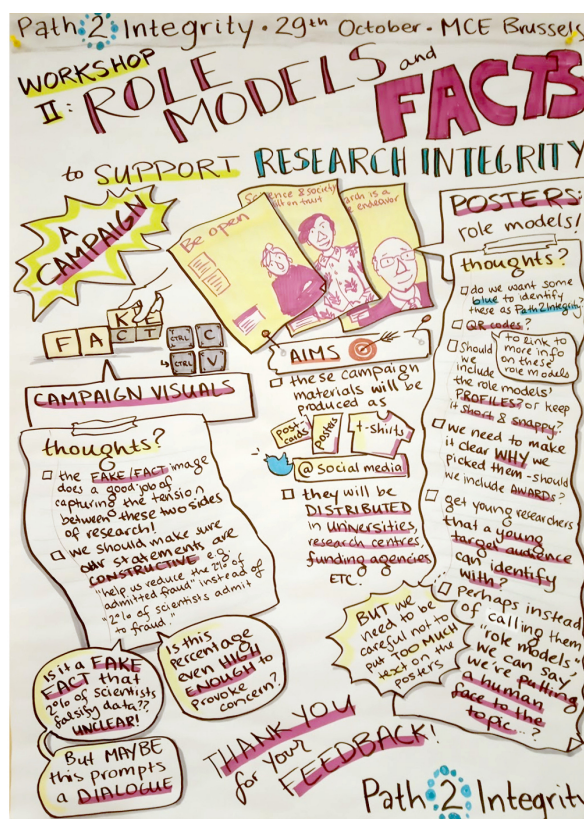 Path 2 Integrity · 29th October · MCE Brussels
WORKSHOP
II:
ROLE
MODELS and
FACTS
to SUPPORT RESEARCH INTEGRITY
A
CAMPAIGN
F A K
C T
CTRL C
CTRL V
CAMPAIGN VISUALS
thoughts?
the FAKE/FACT image
does a good job of
capturing the tension
between these two sides
of research!
we should make sure
our statements are
CONSTRUCTIVE e.g.
"help us reduce the 2% of
admitted fraud" instead of
"2% of scientists admit
to fraud."
Is it a FAKE
FACT that
2% of scientists
falsify data??
UNCLEAR!
Is this
percentage
even HIGH
ENOUGH to
provoke
concern?
But MAYBE
this prompts
a DIALOGUE
Be open
& society
on trust
is a
endeavor
AIMS
these campaign
materials will be
produced as
post
cards
posters
t-shirts
@ social media
they will be
DISTRIBUTED
in universities,
research centres,
funding agencies
ETC
BUT we
need to be
careful not to
put TOO MUCH
text on the
posters
THANK YOU
for your
FEEDBACK!
POSTERS:
role models!
thoughts?
do we want some
blue to identify
these as Path2Integrity
QR codes?
to link to
more info
on these
role models
Should
we
include
the role models'
PROFILES? or keep
it short & snappy?
we need to make
it clear WHY we
picked them - should
we include AWARDS?
get young researchers
that a young
target audience
can identify
with?
Perhaps instead
of calling them
'role models'
we can say
we're putting
a human
face to the
topic...?
Path 2 Integrity